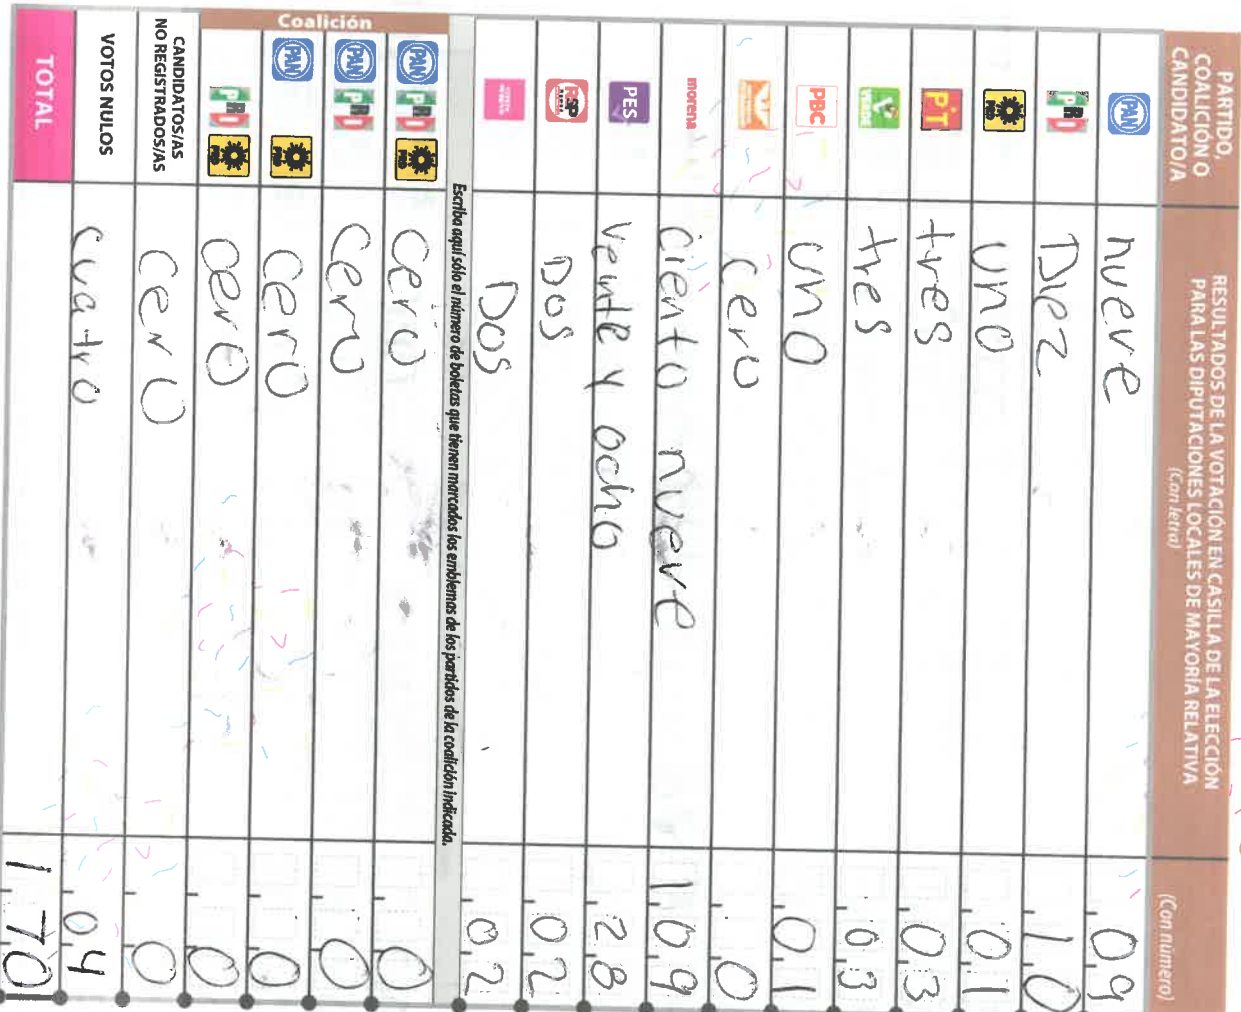 PARTIDO, COALICIÓN O CANDIDATO/A
RESULTADOS DE LA VOTACIÓN EN CASILLA DE LA ELECCIÓN
PARA LAS DIPUTACIONES LOCALES DE MAYORÍA RELATIVA
(Con letra)
(Con número)
PAN nueve 09
PRI Diez 10
PRD uno 01
PT tres 03
VERDE tres 03
PBC uno 01
cero 0
morena ciento nueve 109
PES veinte y ocho 28
RSP Dos 02
Dos 02
Escriba aquí sólo el número de boletas que tienen marcados los emblemas de los partidos de la coalición indicada.
Coalición
PAN PRI PRD cero 0
PAN PRI cero 0
PAN PRD cero 0
PRI PRD cero 0
CANDIDATOS/AS NO REGISTRADOS/AS cero 0
VOTOS NULOS cuatro 04
TOTAL 170